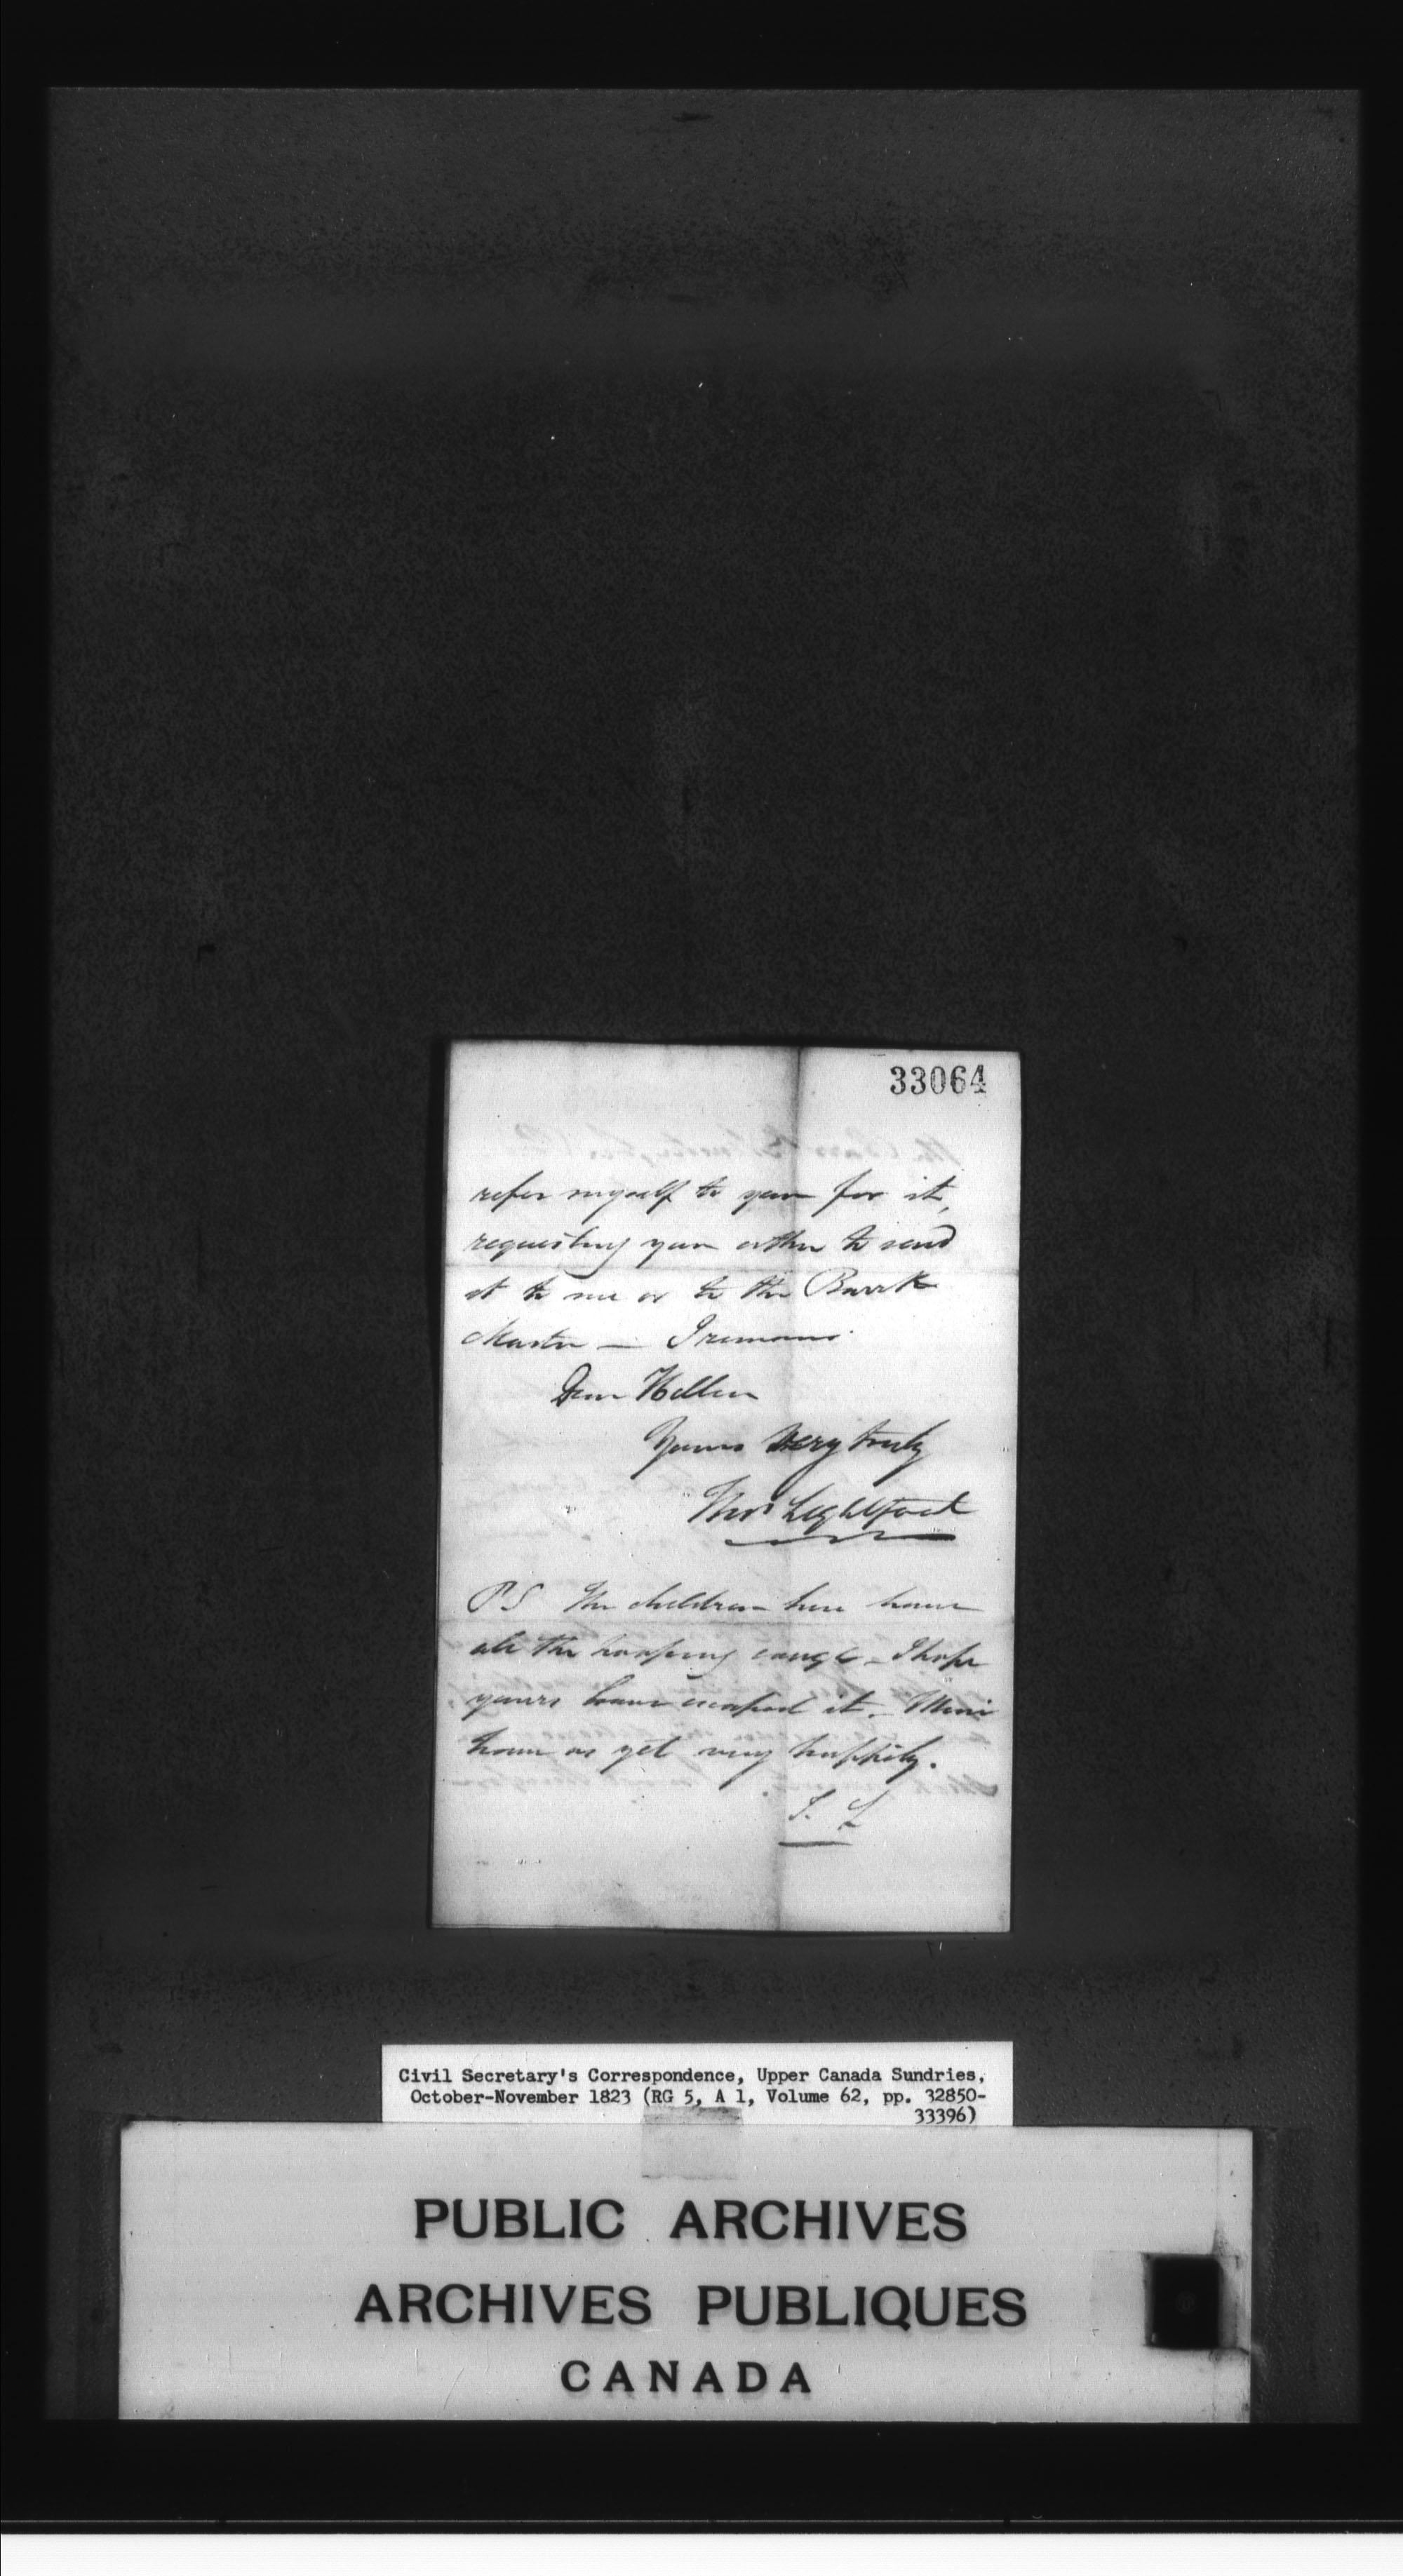 33064
refer myself to you for it,
requesting you either to send
it to me or to the Barrk
Master — I remain
Dear Hillier
Yours very truly
Thos Lightfoot
P.S The children here have
all the hooping cough – I hope
yours have escaped it. Mine
have as yet very happily.
T. L
Civil Secretary's Correspondence, Upper Canada Sundries,
October-November 1823 (RG 5, A 1, Volume 62, pp. 32850-
33396)
PUBLIC ARCHIVES
ARCHIVES PUBLIQUES
CANADA